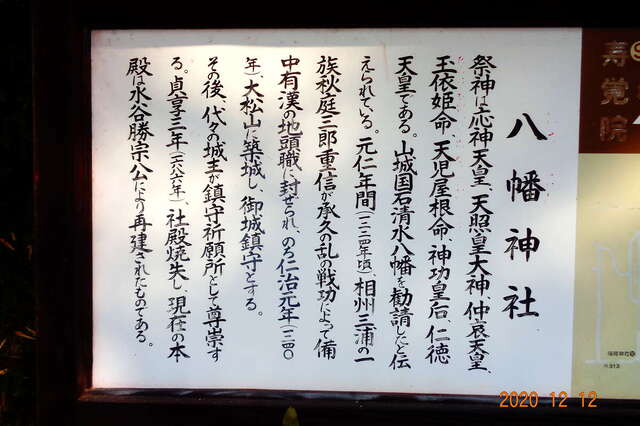 八幡神社
祭神は応神天皇、天照皇大神、仲哀天皇、
玉依姫命、天児屋根命、神功皇后、仁徳
天皇である。山城国石清水八幡を勧請したと伝
えられている。元仁年間(一二二四年頃)、相州三浦の一
族秋庭三郎重信が承久の乱の戦功によって備
中有漢の地頭職に封ぜられ、のち仁治元年(一二四〇
年)、大松山に築城し、御城鎮守とする。
その後、代々の城主が鎮守祈願所として尊崇す
る。貞享三年(一六八六年)、社殿焼失し、現在の本
殿は水谷勝宗公により再建されたものである。
寿覚院
2020 12 12